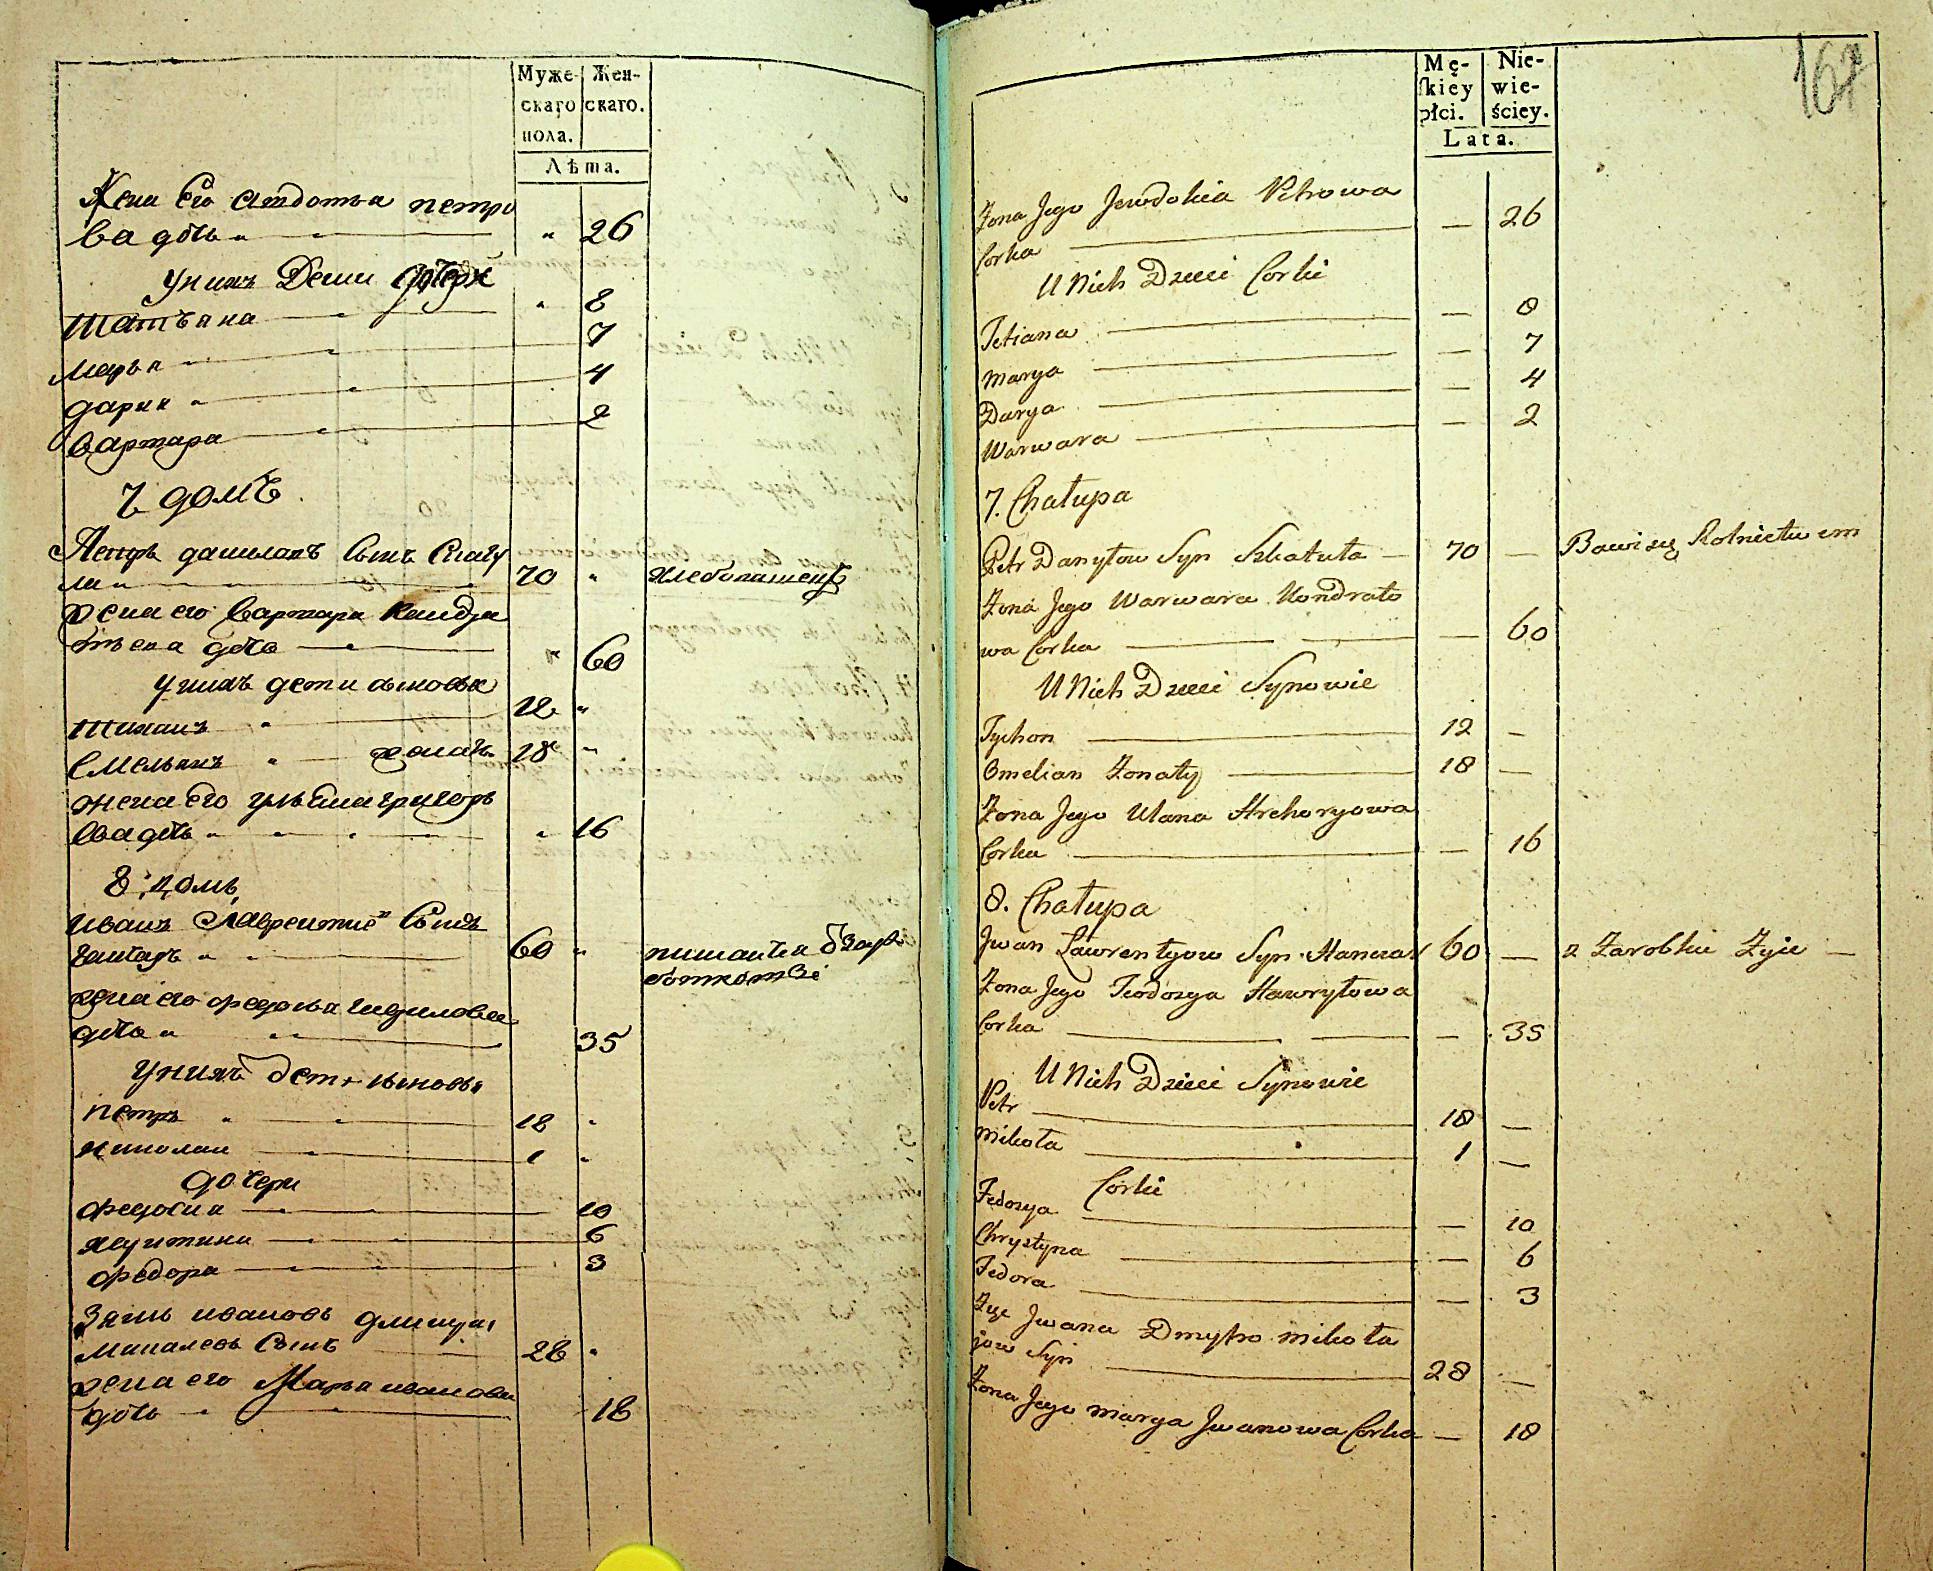 Муже-
скаго
пола.
Жен-
скаго.
Лѣта.
Жена Его Авдотья петро
ва дочь 26
У нихъ Дети Дочери
татьяна 8
марья 7
дария 4
варвара 2
7 домъ
Петръ данилавъ Сынъ Скату
ла 70 хлебопашецъ
жена его варвара Кандра
тьева дочь 60
У нихъ дети сыновья
тиханъ 12
Емельянъ женатъ 18
жена его ульяна григорь
ева дочь 16
8 домъ
иванъ Лаврентиевъ Сынъ
60 питается
жена его федосья гавриловна
дочь 35
У нихъ дети сыновья
петръ 18
николай 1
дочери
федосия 10
христина 6
федора 3
Зять ивановъ дмитрий
михалевъ Сынъ 28
жена его Марья иванова
дочь 18
167
Mę-
skiey
płci.
Nie-
wie-
ściey.
Lata.
Żona Jego Jewdokia Petrowa
Corka — 26
U Nich Dzieci Corki
Tetiana — 8
Marya — 7
Darya — 4
Warwara — 2
7. Chałupa
Petr Danyłow Syn Szkatuła — 70 — Bawi się Rolnictwem
Żona Jego Warwara Kondrato
wa Corka — 60
U Nich Dzieci Synowie
Tychon 12 —
Omelian Żonaty 18 —
Żona Jego Ulana Hrehoryowa
Corka — 16
8. Chałupa
Jwan Ławrentyow Syn Hanczar 60 — z Zarobku Żyie —
Żona Jego Teodozya Hawryłowa
Corka — 35
U Nich Dzieci Synowie
Petr 18 —
Mikoła 1 —
Corki
Fedosya — 10
Chrystyna — 6
Fedora — 3
Zięć Jwana Dmytro Mikoła
jow Syn 28 —
Żona Jego Marya Jwanowa Corka — 18